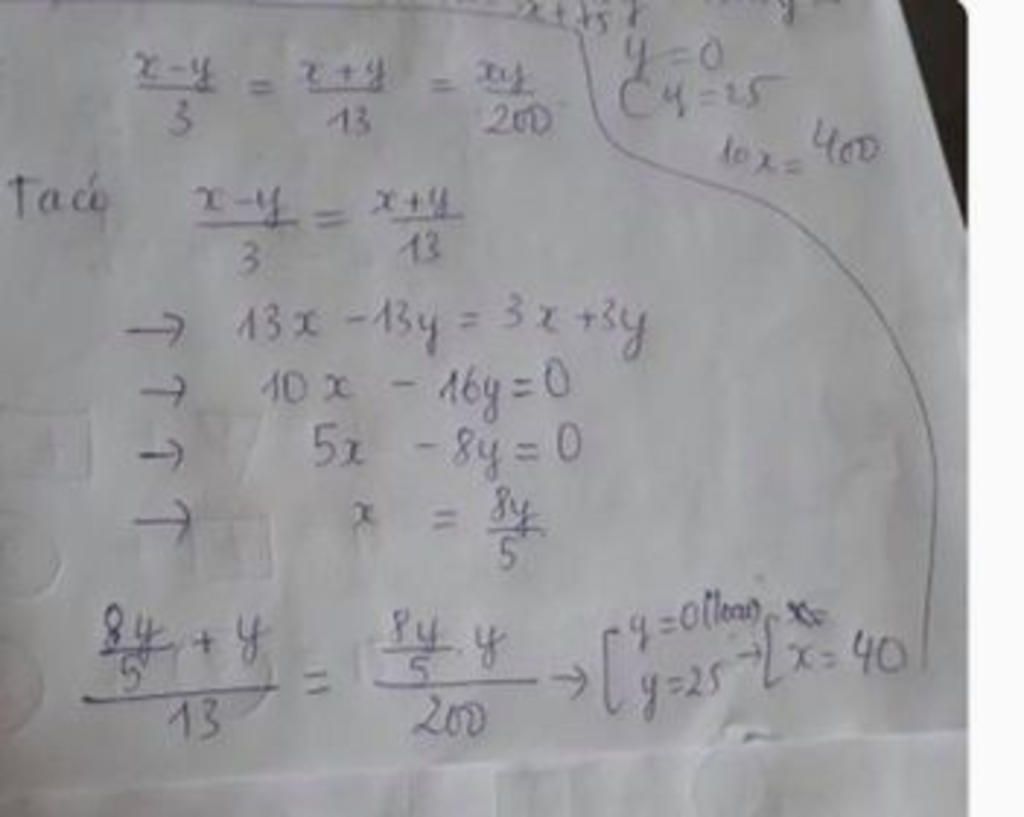 x-y/3 = x+y/13 = xy/200
y = 0
y = 25
10x = 400
Ta có x-y/3 = x+y/13
→ 13x - 13y = 3x + 3y
→ 10x - 16y = 0
→ 5x - 8y = 0
→ x = 8y/5
8y/5 + y/13 = 8y/5 . y/200 → [ y = 0 (loại) → [ x=
y = 25 x = 40